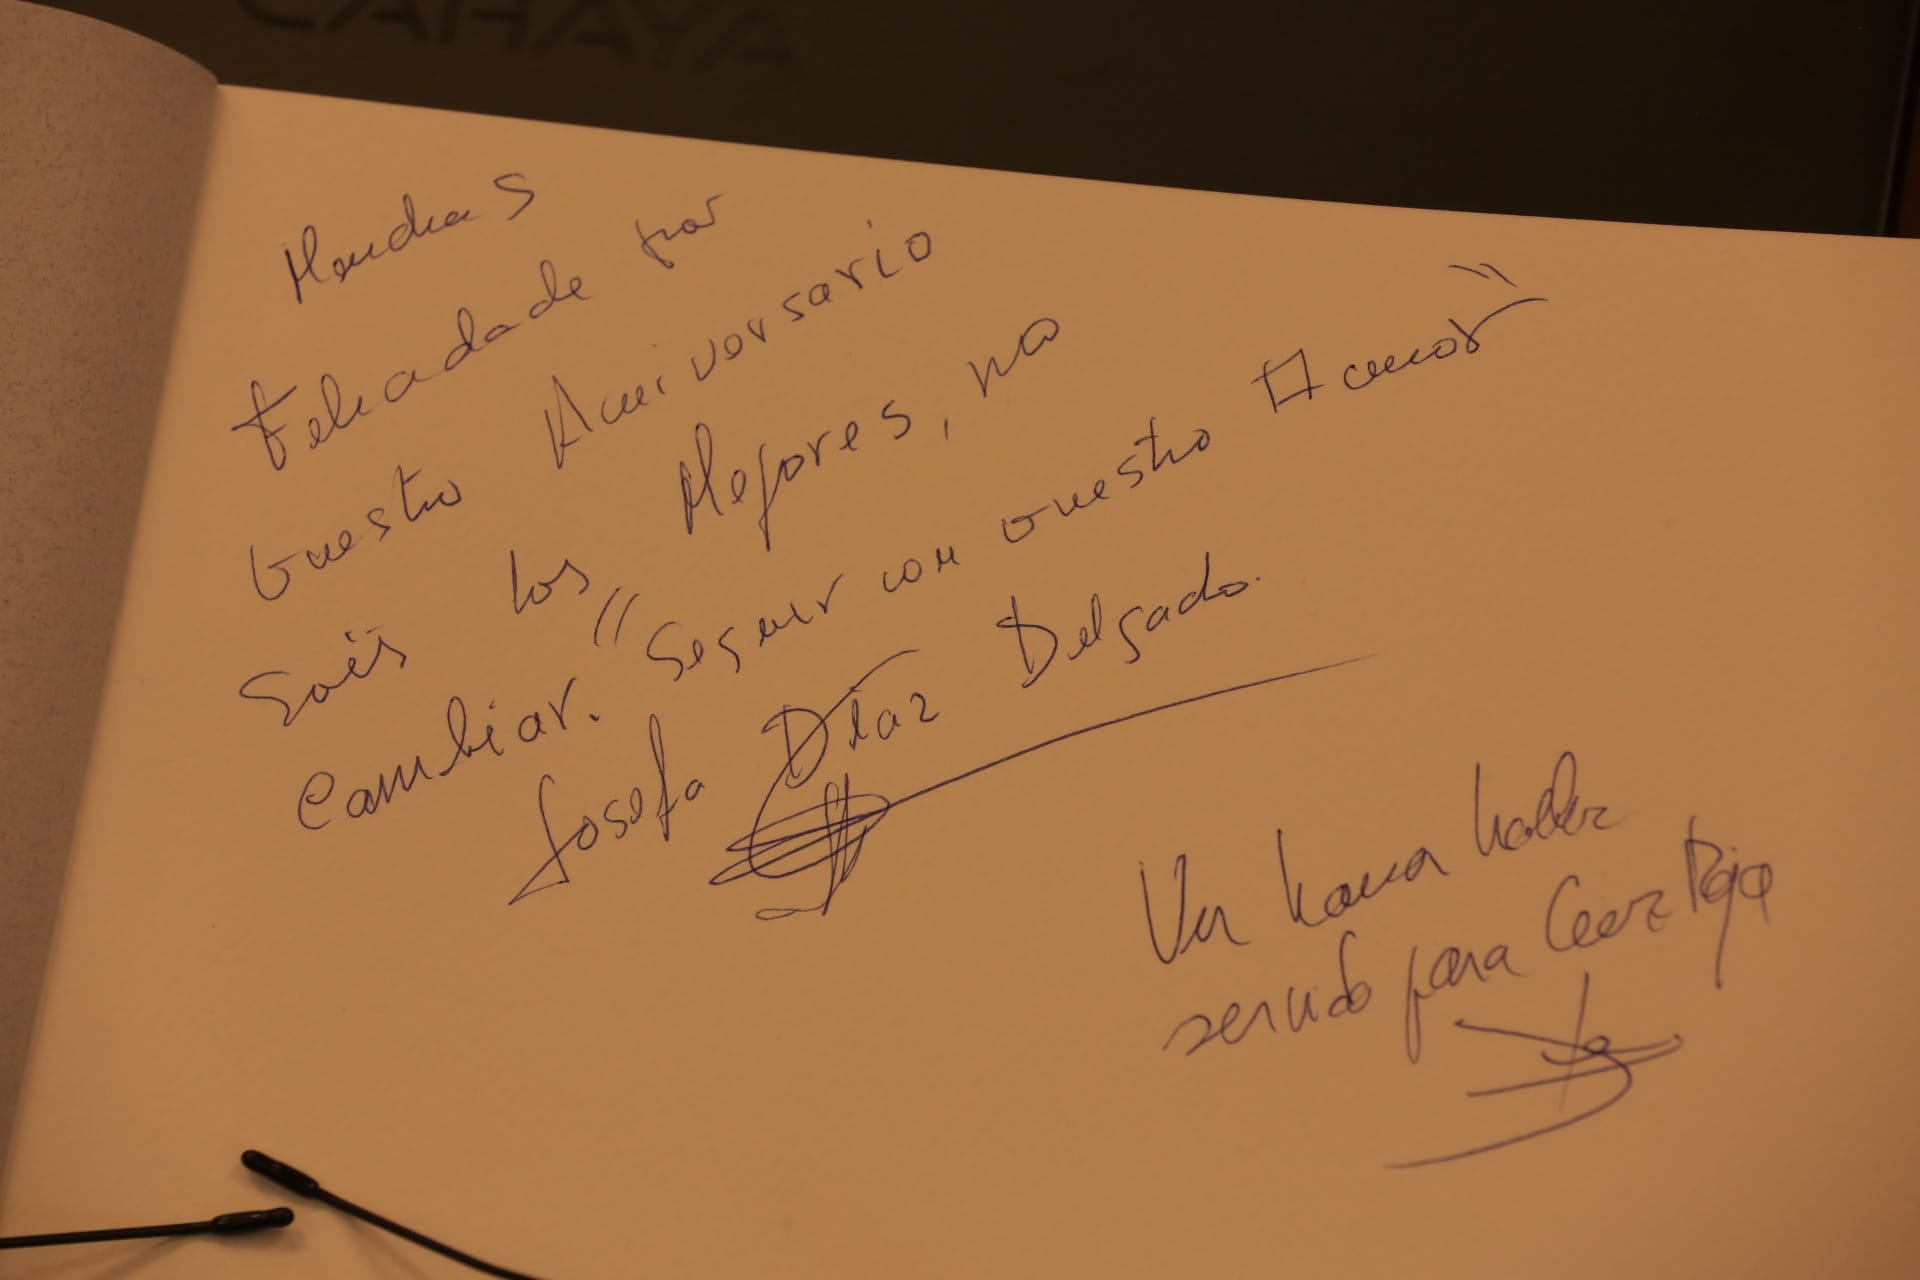 CAHAYA
Muchas
Felicidade por
vuestro Aniversario
Sois los Mejores, no
Cambiar. "Seguir con vuestro Amor"
Josefa Díaz Delgado.
Un haber
servido para Cruz Roja